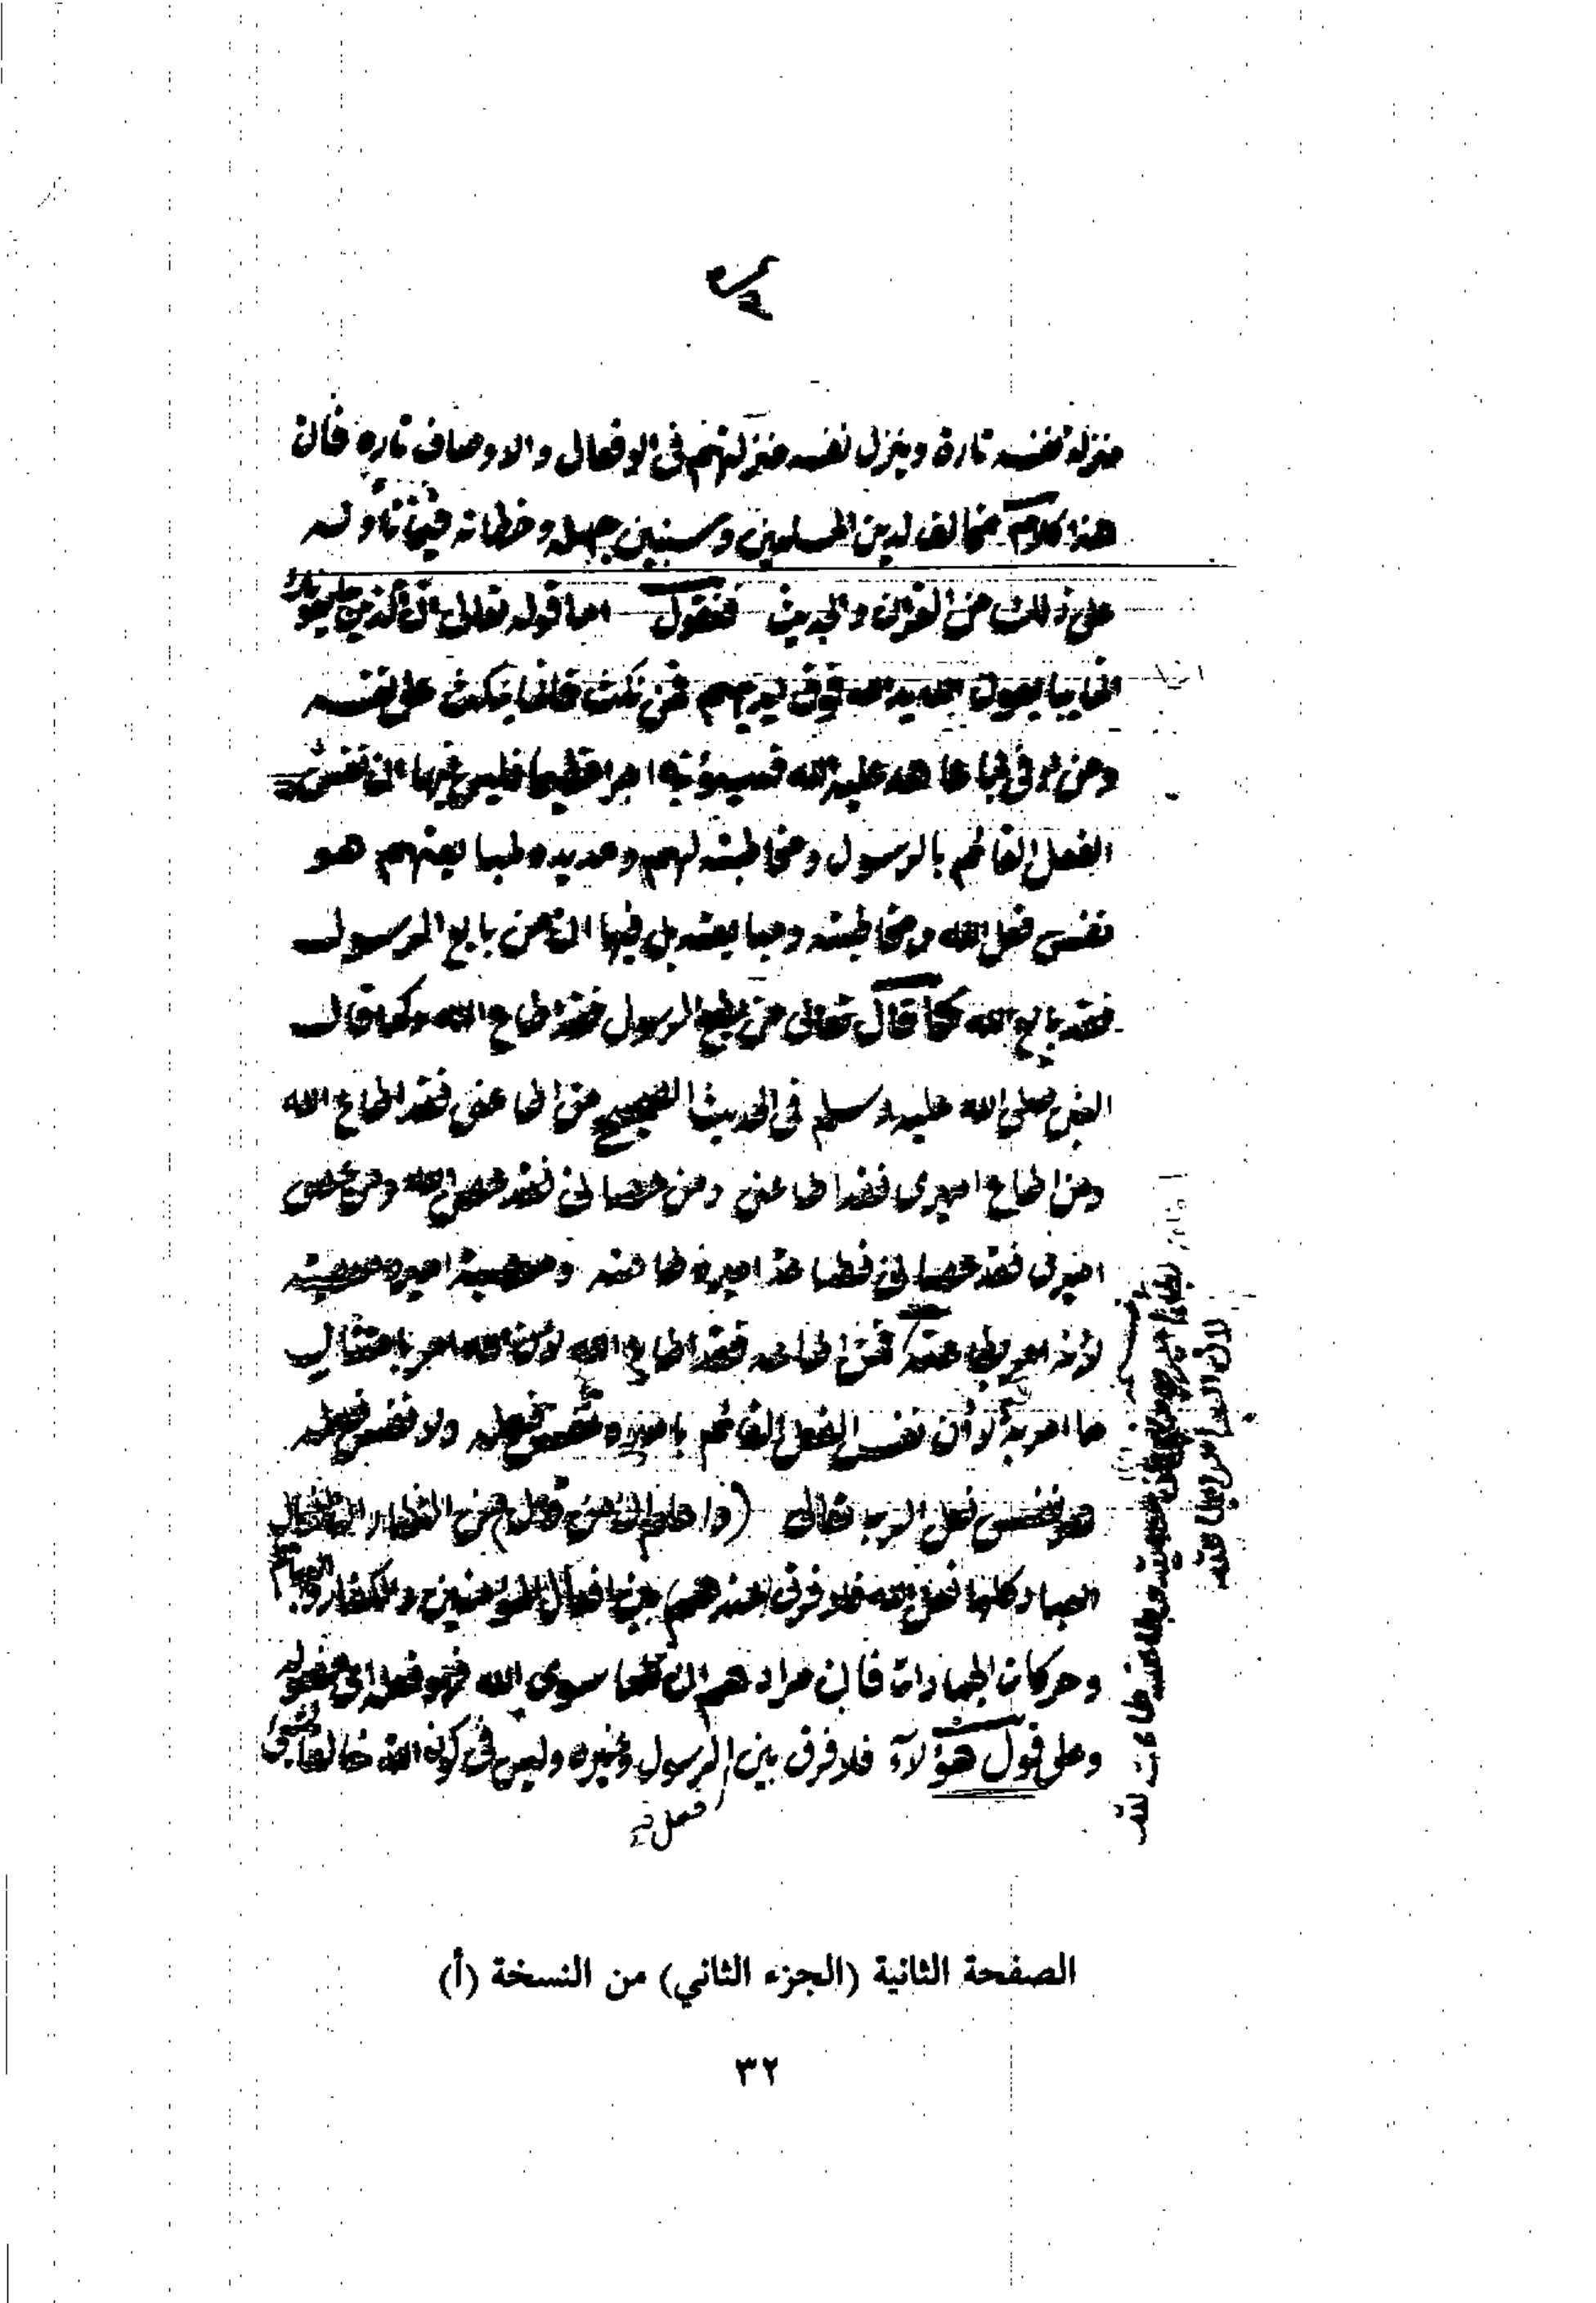 منزلة نفسه تارة وينزل نفسه منزلتهم في الافعال والاوصاف تاره فان
هذا كلام مخالف لدين المسلمين وسنبين جهله وخطائه فيما تأوله
على ذلك من القرآن والحديث فنقول اما قوله تعالى ان الذين يبايعونك
انما يبايعون الله يد الله فوق ايديهم فمن نكث فانما ينكث على نفسه
ومن اوفى بما عاهد عليه الله فسيؤتيه اجرا عظيما فليس فيها ان نفس
الفعل القائم بالرسول ومخاطبته لهم ومد يده لمبايعتهم هو
نفس فعل الله ومخاطبته ومبايعته بل فيها ان من بايع الرسول
فقد بايع الله كما قال تعالى من يطع الرسول فقد اطاع الله وكما قال
النبي صلى الله عليه وسلم في الحديث الصحيح من اطاعني فقد اطاع الله
ومن اطاع اميري فقد اطاعني ومن عصاني فقد عصى الله ومن عصى
اميري فقد عصاني فطاعة اميره طاعته ومعصية اميره معصيته
لأنه امر بطاعته فمن اطاعه فقد اطاع الله لأن الله امر بامتثال
ما امر به لا أن نفس الفعل القائم باميره نفس فعله ولا نفس فعله
هو نفس فعل الرب تعالى (واعلم ان من قال من النظار ان افعال
العباد كلها فعل الله فلا فرق عندهم بين افعال المؤمنين والكفار والبهائم
وحركات الجمادات فان مرادهم ان كلما سوى الله فهو فعله اي مفعوله
وعلى قول هؤلاء فلا فرق بين الرسول وغيره وليس في كون الله خالقا
فعل
لان الله امر بطاعته
الصفحة الثانية (الجزء الثاني) من النسخة (أ)
٣٢